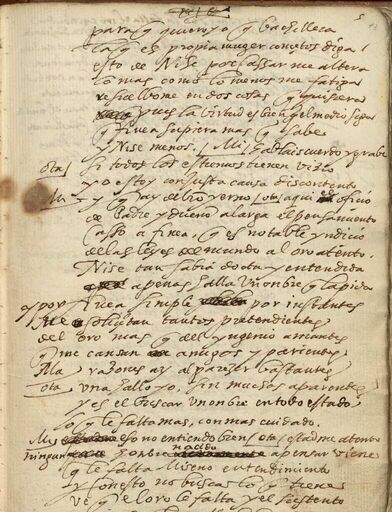 para q quiero yo q bachillera
la q es propia muger concetos diga?
esto de Nise por casar me altera
lo mas como lo menos me fatiga
resuelbome en dos cosas q quisiera
pues la virtud es bien q el medio siga
q finea supiera mas q sabe
y Nise menos. / Mi / Hablais cuerdo y grabe
ota / Si todos los estremos tienen vicio
yo estoy con justa causa discontento
Mi / y q ay de bro yerno / ota / aqui el oficio
de Padre y dueño alarga el pensamiento
Casso a finea, q es notable yndicio
de las leyes del mundo al oro atento.
Nise tan sabia dota y entendida
apenas halla Un onbre q la pida
y por finea simple por instantes
me soliçitan tantos pretendientes
del oro mas q del yngenio amantes
q me cansan amigos y parientes
Mis razones ay al pareçer bastantes
ota Una hallo yo, sin muchas aparentes
y es el buscar Un onbre en todo estado
lo q le falta mas, con mas cuidado.
Mis eso no entiendo bien / ota / estadme atento
ningun onbre naçido a pensar viene
q le falta Miseno entendimiento
y con esto no busca lo q tiene
ve q el oro le falta y el sustento